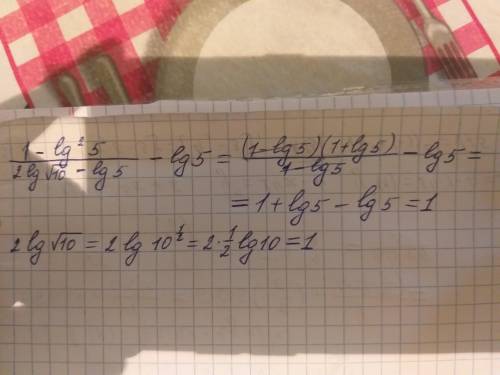 (1 - lg²5)/(2lg√10 - lg5) - lg5 = ((1-lg5)(1+lg5))/(1-lg5) - lg5 =
= 1 + lg5 - lg5 = 1
2lg√10 = 2lg10^(1/2) = 2·(1/2)lg10 = 1